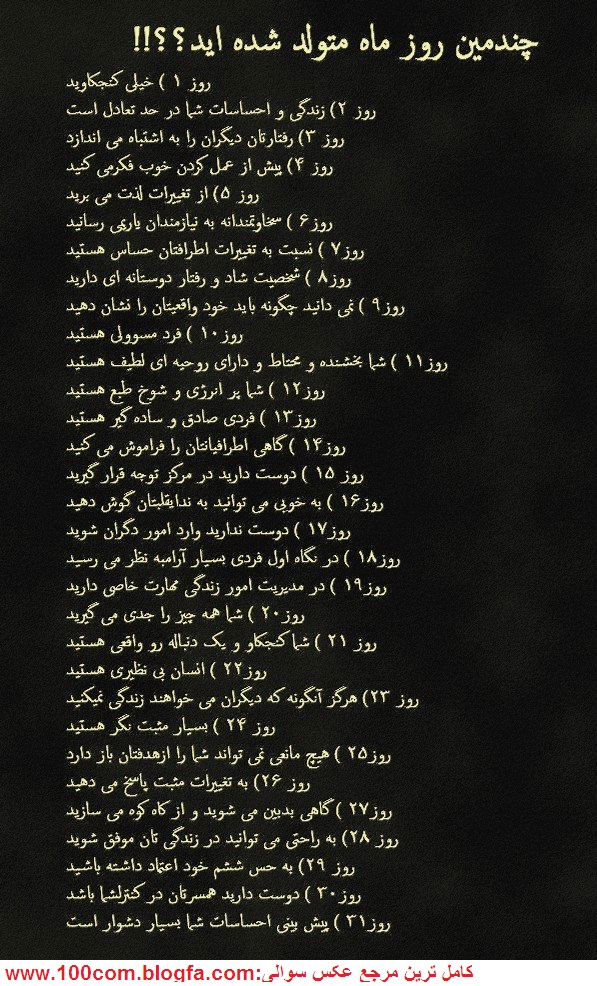 چندمین روز ماه متولد شده اید؟؟!!
روز ۱ ) خیلی کنجکاوید
روز ۲) زندگی و احساسات شما در حد تعادل است
روز ۳) رفتارتان دیگران را به اشتباه می اندازد
روز ۴) پیش از عمل کردن خوب فکرمی کنید
روز ۵) از تغییرات لذت می برید
روز۶ ) سخاوتمندانه به نیازمندان یاریمی رسانید
روز۷ ) نسبت به تغییرات اطرافتان حساس هستید
روز۸ ) شخصیت شاد و رفتار دوستانه ای دارید
روز۹ ) نمی دانید چگونه باید خود واقعیتان را نشان دهید
روز۱۰ ) فرد مسوولی هستید
روز۱۱ ) شما بخشنده و محتاط و دارای روحیه ای لطیف هستید
روز۱۲ ) شما پر انرژی و شوخ طبع هستید
روز۱۳ ) فردی صادق و ساده گیر هستید
روز۱۴ ) گاهی اطرافیانتان را فراموش می کنید
روز ۱۵ ) دوست دارید در مرکز توجه قرار گیرید
روز۱۶ ) به خوبی می توانید به ندایقلبتان گوش دهید
روز۱۷ ) دوست ندارید وارد امور دگران شوید
روز۱۸ ) در نگاه اول فردی بسیار آرامبه نظر می رسید
روز۱۹ ) در مدیریت امور زندگی مهارت خاصی دارید
روز۲۰ ) شما همه چیز را جدی می گیرید
روز ۲۱ ) شما کنجکاو و یک دنباله رو واقعی هستید
روز۲۲ ) انسان بی نظیری هستید
روز ۲۳) هرگز آنگونه که دیگران می خواهند زندگی نمیکنید
روز ۲۴ ) بسیار مثبت نگر هستید
روز۲۵ ) هیچ مانعی نمی تواند شما را ازهدفتان باز دارد
روز ۲۶) به تغییرات مثبت پاسخ می دهید
روز۲۷ ) گاهی بدبین می شوید و از کاه کوه می سازید
روز ۲۸) به راحتی می توانید در زندگی تان موفق شوید
روز ۲۹) به حس ششم خود اعتماد داشته باشید
روز۳۰ ) دوست دارید همسرتان در کنترلشما باشد
روز۳۱ ) پیش بینی احساسات شما بسیار دشوار است
کامل ترین مرجع عکس سوالی:www.100com.blogfa.com